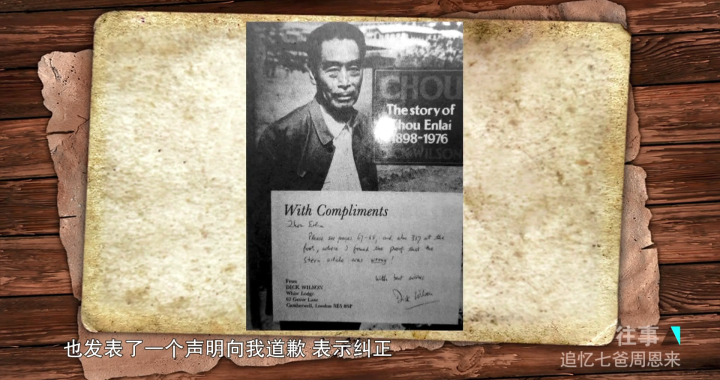 CHOU
The story of
Chou Enlai
1898-1976
DICK WILSON
With Compliments
Please see pages 67-68, and also 307 at the
foot, where I found the proof that the
Stern article was wrong!
With best wishes
Dick Wilson
From
DICK WILSON
London SE5
往事
追忆七爸周恩来
也发表了一个声明向我道歉 表示纠正